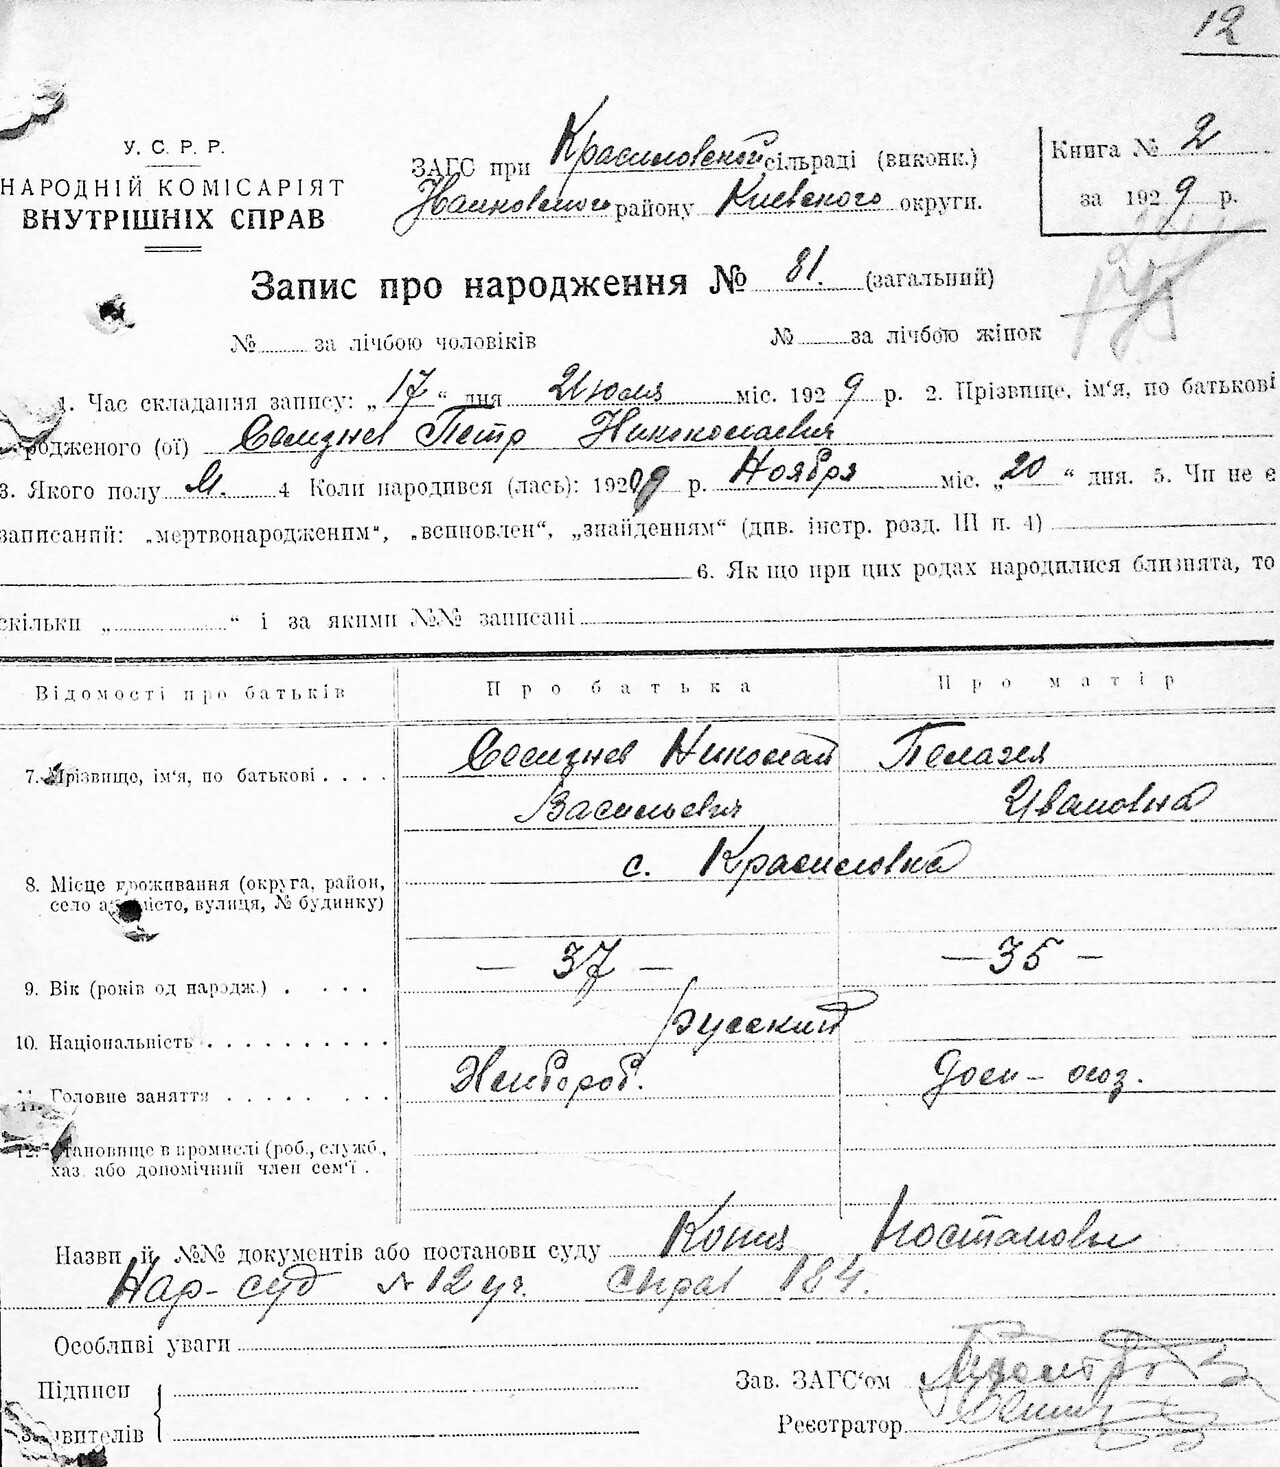 12
У. С. Р. Р.
НАРОДНІЙ КОМІСАРІЯТ
ВНУТРІШНІХ СПРАВ
ЗАГС при Красиловской сільраді (виконк.)
Иванковского району Киевского округи.
Книга № 2
за 1929 р.
Запис про народження № 81. (загальний)
№ за лічбою чоловіків № за лічбою жінок
1. Час складання запису: „17“ дня Июля міс. 1929 р. 2. Прізвище, ім'я, по батькові
родженого (ої) Селизнев Петр Николаевич
3. Якого полу М. 4 Коли народився (лась): 1909 р. Ноября міс. „20“ дня. 5. Чи не є
записаний: „мертвонародженим“, „всиновлен“, „знайденням“ (див. інстр. розд. III п. 4)
6. Як що при цих родах народилися близнята, то
скільки „ “ і за якими №№ записані
Відомості про батьків Про батька Про матір
7. Прізвище, ім'я, по батькові . . . . Селизнев Николай Пелагея
Васильевич Ивановна
8. Місце проживання (округа, район, село або місто, вулиця, № будинку) с. Красиловка
9. Вік (років од народж.) . . . . — 37 — — 35 —
10. Національність . . . . . . . . . . русский
11. Головне заняття . . . . . . . . Хлибороб. Дом-хоз.
12. Становище в промислі (роб., служб.,
хаз. або допомічний член сем'ї .
Назви й №№ документів або постанови суду Копия постановы
Нар-суд № 12 уч. справ 184.
Особливі уваги
Підписи
заявителів
Зав. ЗАГС'ом
Реєстратор